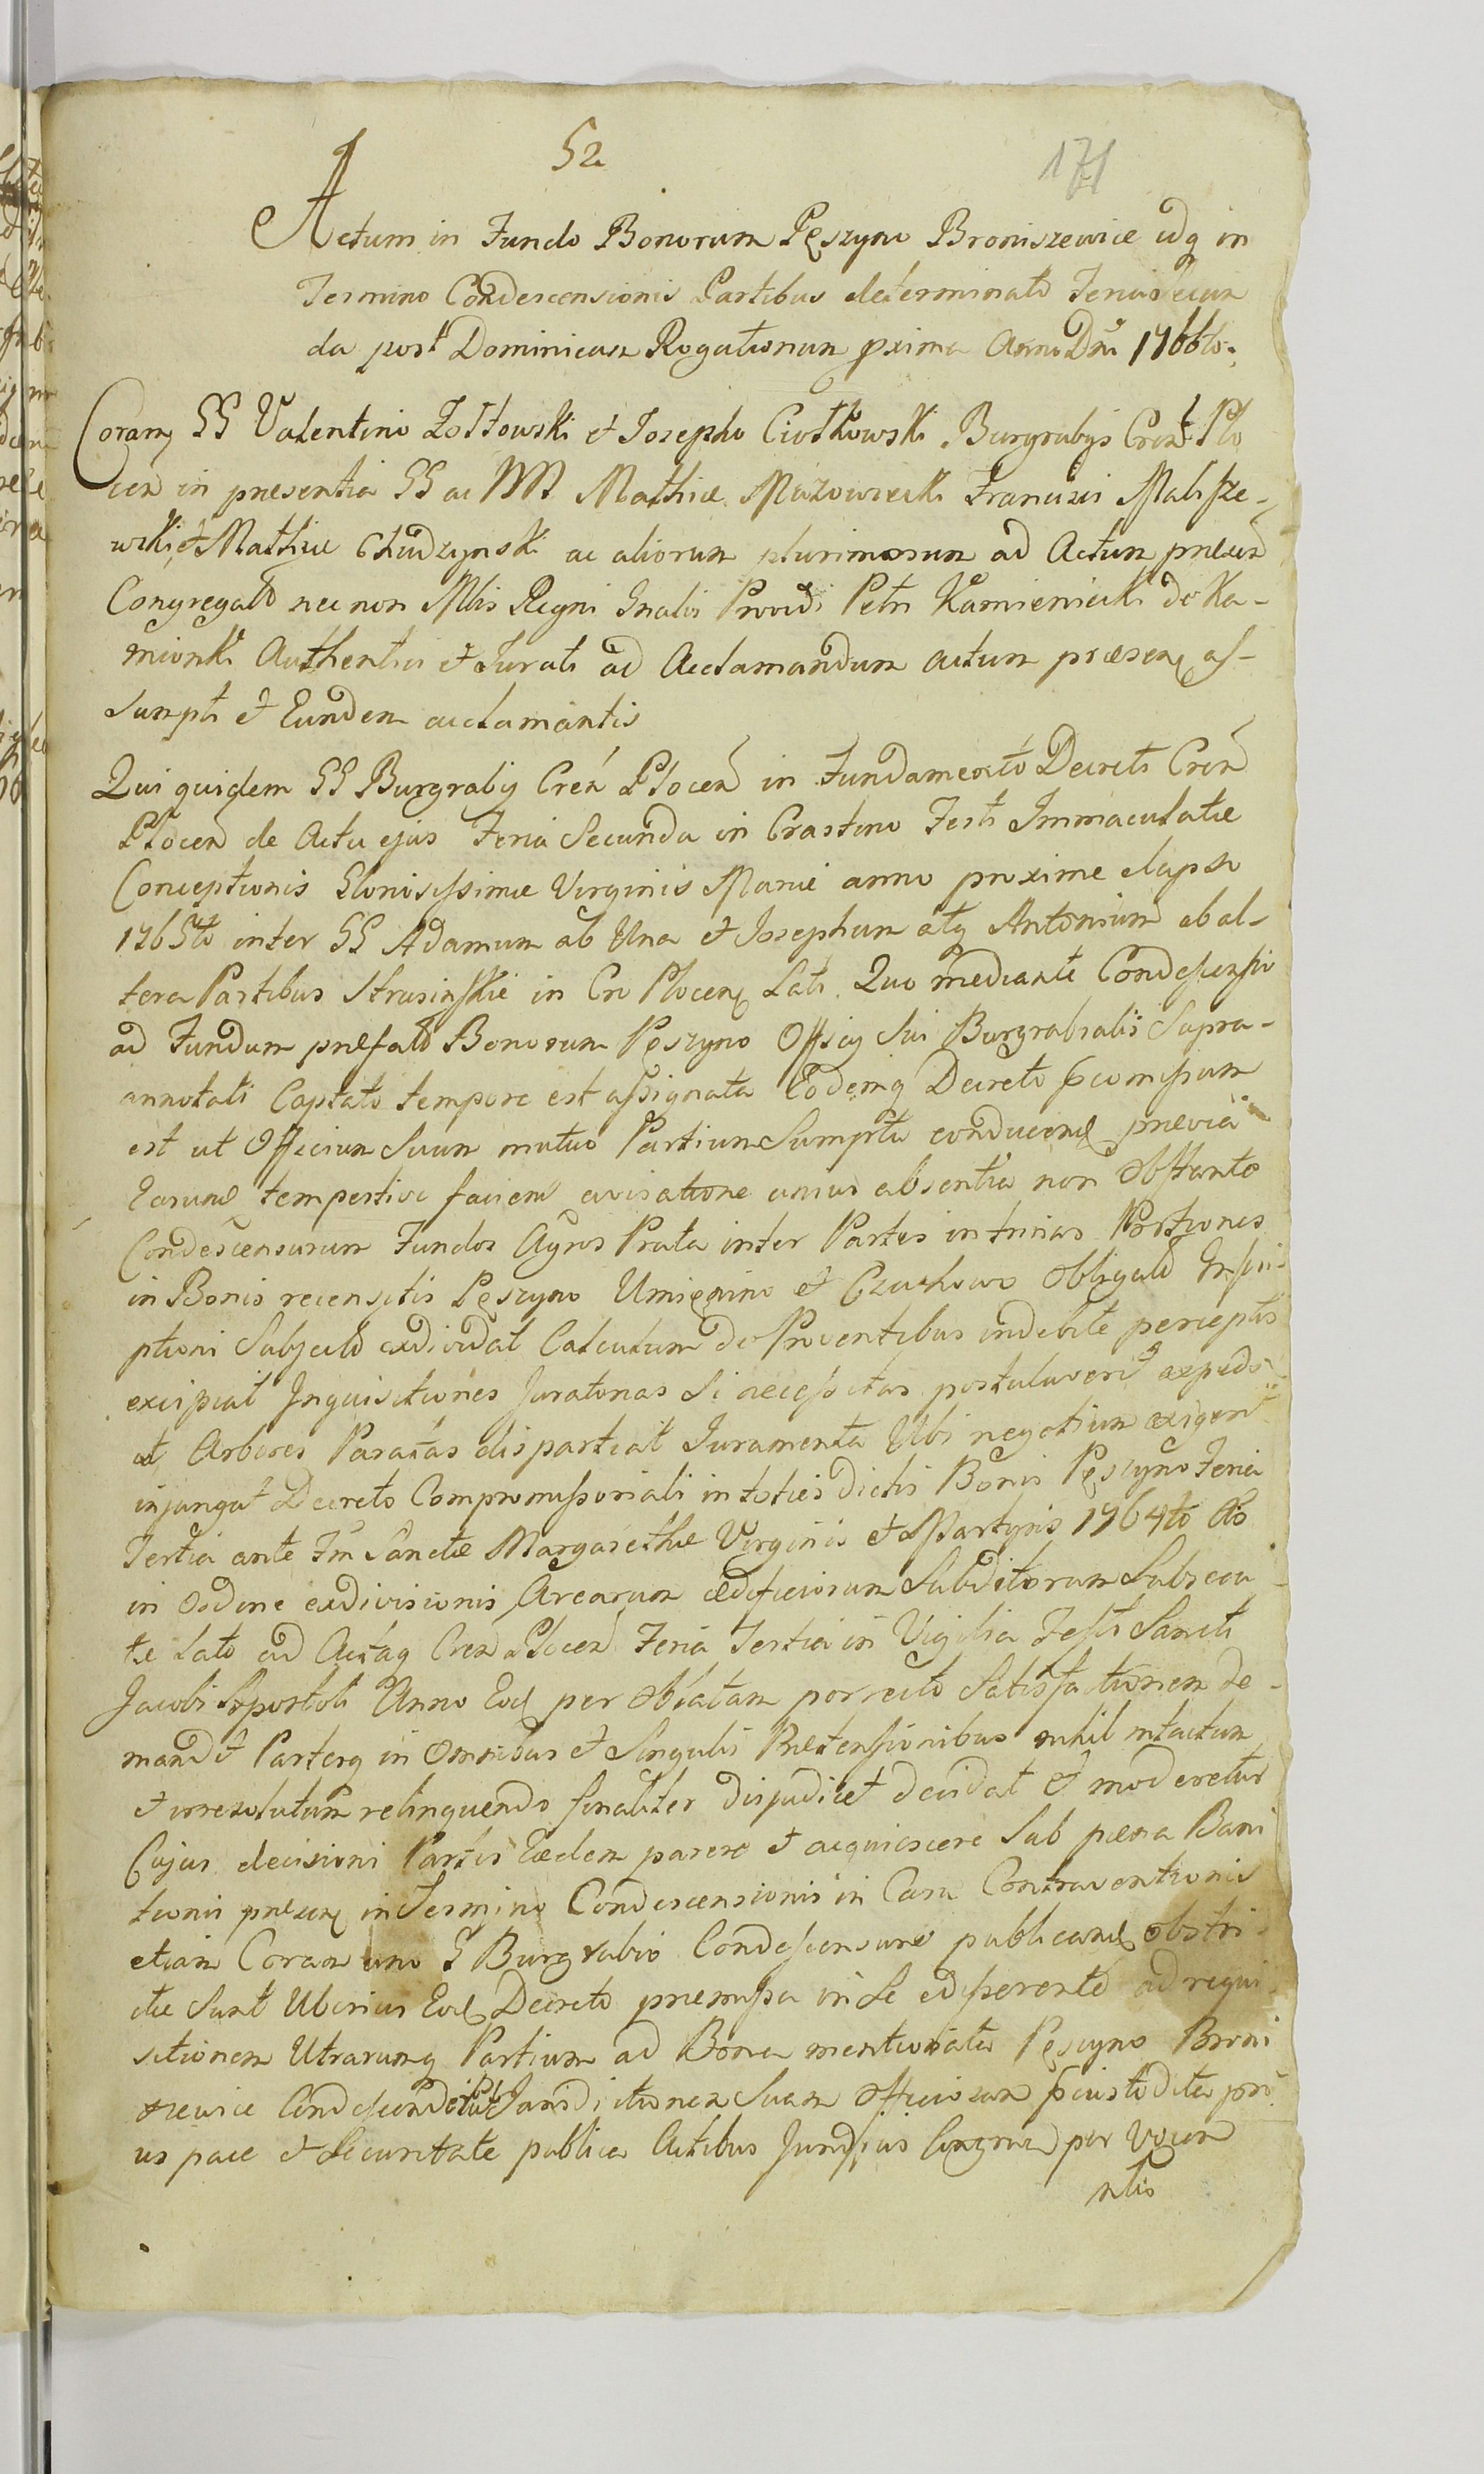 52
171
Actum in Fundo Bonorum Pęszyno Broniszewice idq in
Termino Condescensionis Partibus determinato Feria Secun
da post Dominicam Rogationum pxima Anno Dni 1766to.
Coram GG Valentino Zołtowski et Josepho Ciołkowski Burgrabys Cren Plo
cen in presentia GG ac NN Mathiæ Mazowiecki Francisci Malisze-
wski, et Mathiæ Chudzynski ac aliorum plurimorum ad Actum præsen
Congregato nec non Mlis Regni Gnalis Providi Petri Kamieniecki de Ka-
mionki Authentici et Jurati ad Acclamandum actum præsen as-
sumpti et Eundem acclamantis
Qui quidem GG Burgraby Cren Plocen in Fundamento Decreti Cren
Plocen de Actu ejus Feria Secunda in Crastino Festi Immaculatæ
Conceptionis Gloriosissimæ Virginis Mariæ anno proxime elapso
1765to inter GG Adamum ab Una et Josephum atq Antonium ab al-
tera Partibus Strusinskie in Cro Plocen Lati. Quo mediante Condescensio
ad Fundum præfato Bonorum Pęszyno Officy Sui Burgrabialis Supra-
annotati Captato tempore est assignata Eodemq Decreto comissum
est ut Officium Suum mutuo Partium Sumptu conducen prævia
Earum tempestive facien avisatione unius absentia non obstante
Condescensurum Fundos Agros Prata inter Partes in trinas Portiones
in Bonis recensitis Pęszyno Umienino et Czachowo obligato Inscri-
ptioni Subjecto exdividat Calculum de Proventibus indebite perceptis
excipiat Inquisitiones Juratorias Si necessitas postulaveri expedi-
at Arbores dispartiat Juramenta Ubi negotium exigeri
injungat Decreto Compromissoriali in toties dictis Bonis Pęszyno Feria
Tertia ante Fm Sanctæ Margarethæ Virginis et Martyris 1764to Ao
in Ordine exdivisionis Arearum ædificiorum Subditorum Subsecu
te Lato ad Actaq Cren Plocen Feria Tertia in Vigilia Festi Sancti
Jacobi Apostoli Anno Eod per Oblatam porrecto Satisfactionem de-
mand et Partesq in Omnibus et Singulis Prætensionibus nihil intactum
et irresolutum relinquendo finaliter dijudicet decidat et moderetur
Cujus decisioni Partes Eædem parere et acquiescere Sub pæna Bani
tionis præsen in Termino Condescensionis in Casu Contraventionis
etiam Coram uno G Burgrabio Condescensuro publican obstri-
ctæ Sunt Uberius Eod Decreto præmissa in Se edisserente ad requi
sitionem Utrarumq Partium ad Bona mentionata Pęszyno Broni
szewice Condescendit Jurisdictionem Suam officiosam custodita pri
us pace et Securitate publica Actibus Jurisdicis Congrua per Vocem
nlis